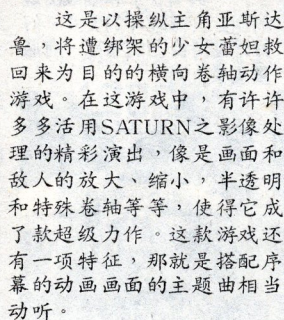 这是以操纵主角亚斯达
鲁，将遭绑架的少女蕾妲救
回来为目的的横向卷轴动作
游戏。在这游戏中，有许许
多多活用SATURN之影像处
理的精彩演出，像是画面和
敌人的放大、缩小，半透明
和特殊卷轴等等，使得它成
了款超级力作。这款游戏还
有一项特征，那就是搭配序
幕的动画画面的主题曲相当
动听。